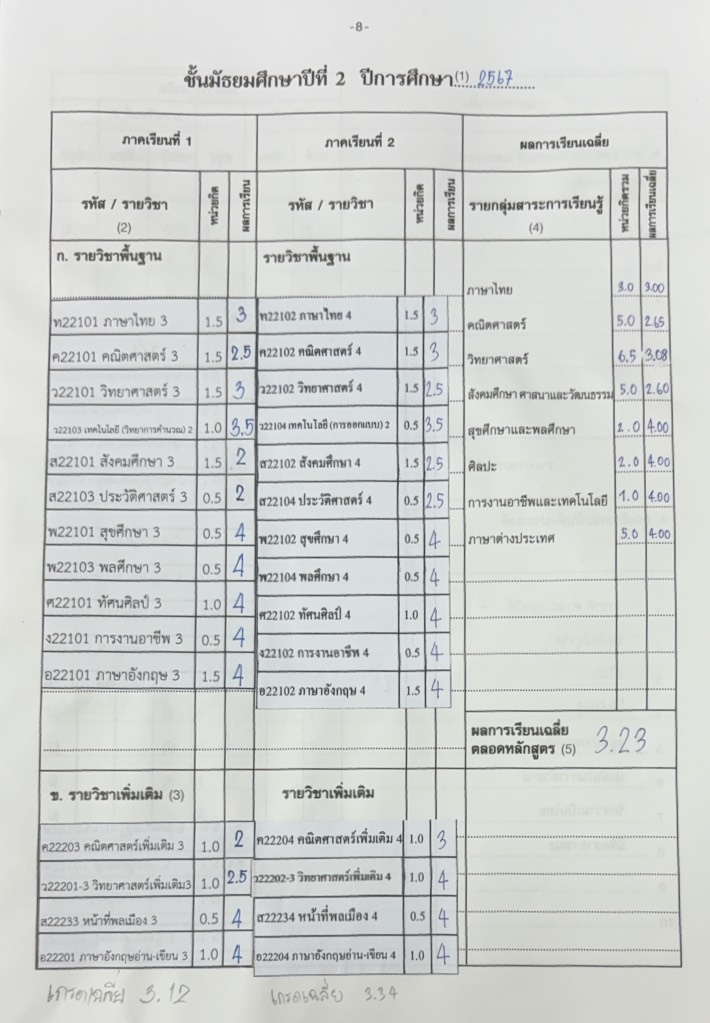 -8-
ชั้นมัธยมศึกษาปีที่ 2 ปีการศึกษา(1) 2567
ภาคเรียนที่ 1 ภาคเรียนที่ 2 ผลการเรียนเฉลี่ย
รหัส / รายวิชา (2) หน่วยกิต ผลการเรียน รหัส / รายวิชา หน่วยกิต ผลการเรียน รายกลุ่มสาระการเรียนรู้ (4) หน่วยกิตรวม ผลการเรียนเฉลี่ย
ก. รายวิชาพื้นฐาน รายวิชาพื้นฐาน
ภาษาไทย 3.0 3.00
ท22101 ภาษาไทย 3 1.5 3 ท22102 ภาษาไทย 4 1.5 3 คณิตศาสตร์ 5.0 2.65
ค22101 คณิตศาสตร์ 3 1.5 2.5 ค22102 คณิตศาสตร์ 4 1.5 3 วิทยาศาสตร์ 6.5 3.08
ว22101 วิทยาศาสตร์ 3 1.5 3 ว22102 วิทยาศาสตร์ 4 1.5 2.5 สังคมศึกษา ศาสนาและวัฒนธรรม 5.0 2.60
ว22103 เทคโนโลยี (วิทยาการคำนวณ) 2 1.0 3.5 ว22104 เทคโนโลยี (การออกแบบ) 2 0.5 3.5 สุขศึกษาและพลศึกษา 2.0 4.00
ส22101 สังคมศึกษา 3 1.5 2 ส22102 สังคมศึกษา 4 1.5 2.5 ศิลปะ 2.0 4.00
ส22103 ประวัติศาสตร์ 3 0.5 2 ส22104 ประวัติศาสตร์ 4 0.5 2.5 การงานอาชีพและเทคโนโลยี 1.0 4.00
พ22101 สุขศึกษา 3 0.5 4 พ22102 สุขศึกษา 4 0.5 4 ภาษาต่างประเทศ 5.0 4.00
พ22103 พลศึกษา 3 0.5 4 พ22104 พลศึกษา 4 0.5 4
ศ22101 ทัศนศิลป์ 3 1.0 4 ศ22102 ทัศนศิลป์ 4 1.0 4
ง22101 การงานอาชีพ 3 0.5 4 ง22102 การงานอาชีพ 4 0.5 4
อ22101 ภาษาอังกฤษ 3 1.5 4 อ22102 ภาษาอังกฤษ 4 1.5 4
ผลการเรียนเฉลี่ย
ตลอดหลักสูตร (5) 3.23
ข. รายวิชาเพิ่มเติม (3) รายวิชาเพิ่มเติม
ค22203 คณิตศาสตร์เพิ่มเติม 3 1.0 2 ค22204 คณิตศาสตร์เพิ่มเติม 4 1.0 3
ว22201-3 วิทยาศาสตร์เพิ่มเติม3 1.0 2.5 ว22202-3 วิทยาศาสตร์เพิ่มเติม 4 1.0 4
ส22233 หน้าที่พลเมือง 3 0.5 4 ส22234 หน้าที่พลเมือง 4 0.5 4
อ22201 ภาษาอังกฤษอ่าน-เขียน 3 1.0 4 อ22204 ภาษาอังกฤษอ่าน-เขียน 4 1.0 4
เกรดเฉลี่ย 3.12 เกรดเฉลี่ย 3.34